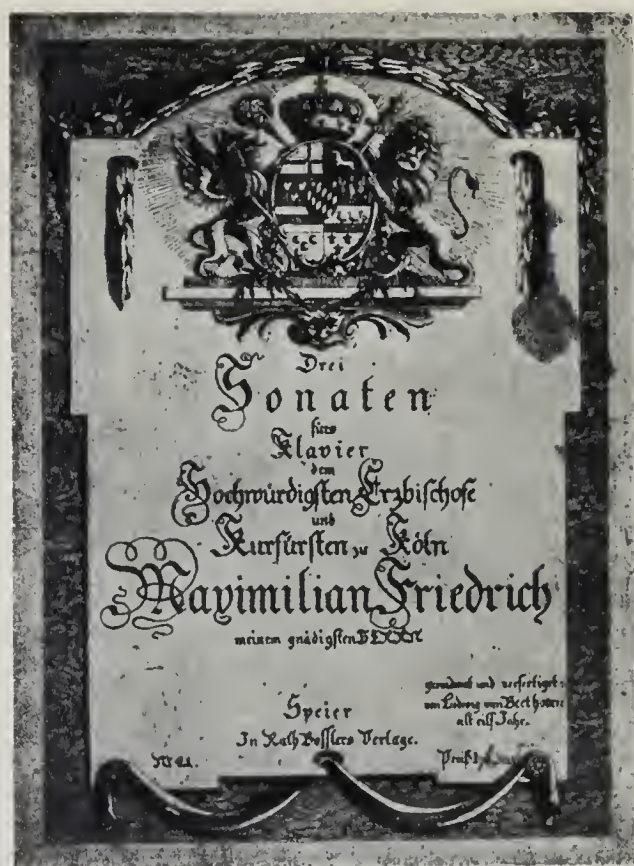 Drei
Sonaten
fürs
Klavier
dem
Hochwürdigsten Erzbischofe
und
Kurfürsten zu Köln
Maximilian Friedrich
meinem gnädigsten HERRN
gewidmet und verfertiget
von Ludwig van Beethoven
alt eilf Jahr.
Speier
In Rath Bosslers Verlage.
No 21.
Preiß